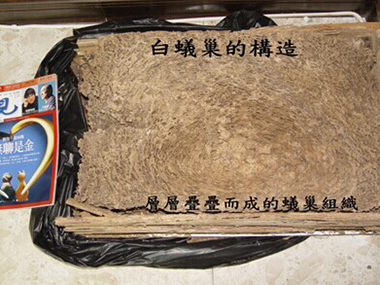 白蟻巢的構造
見
無聊是金
層層疊疊而成的蟻巢組織